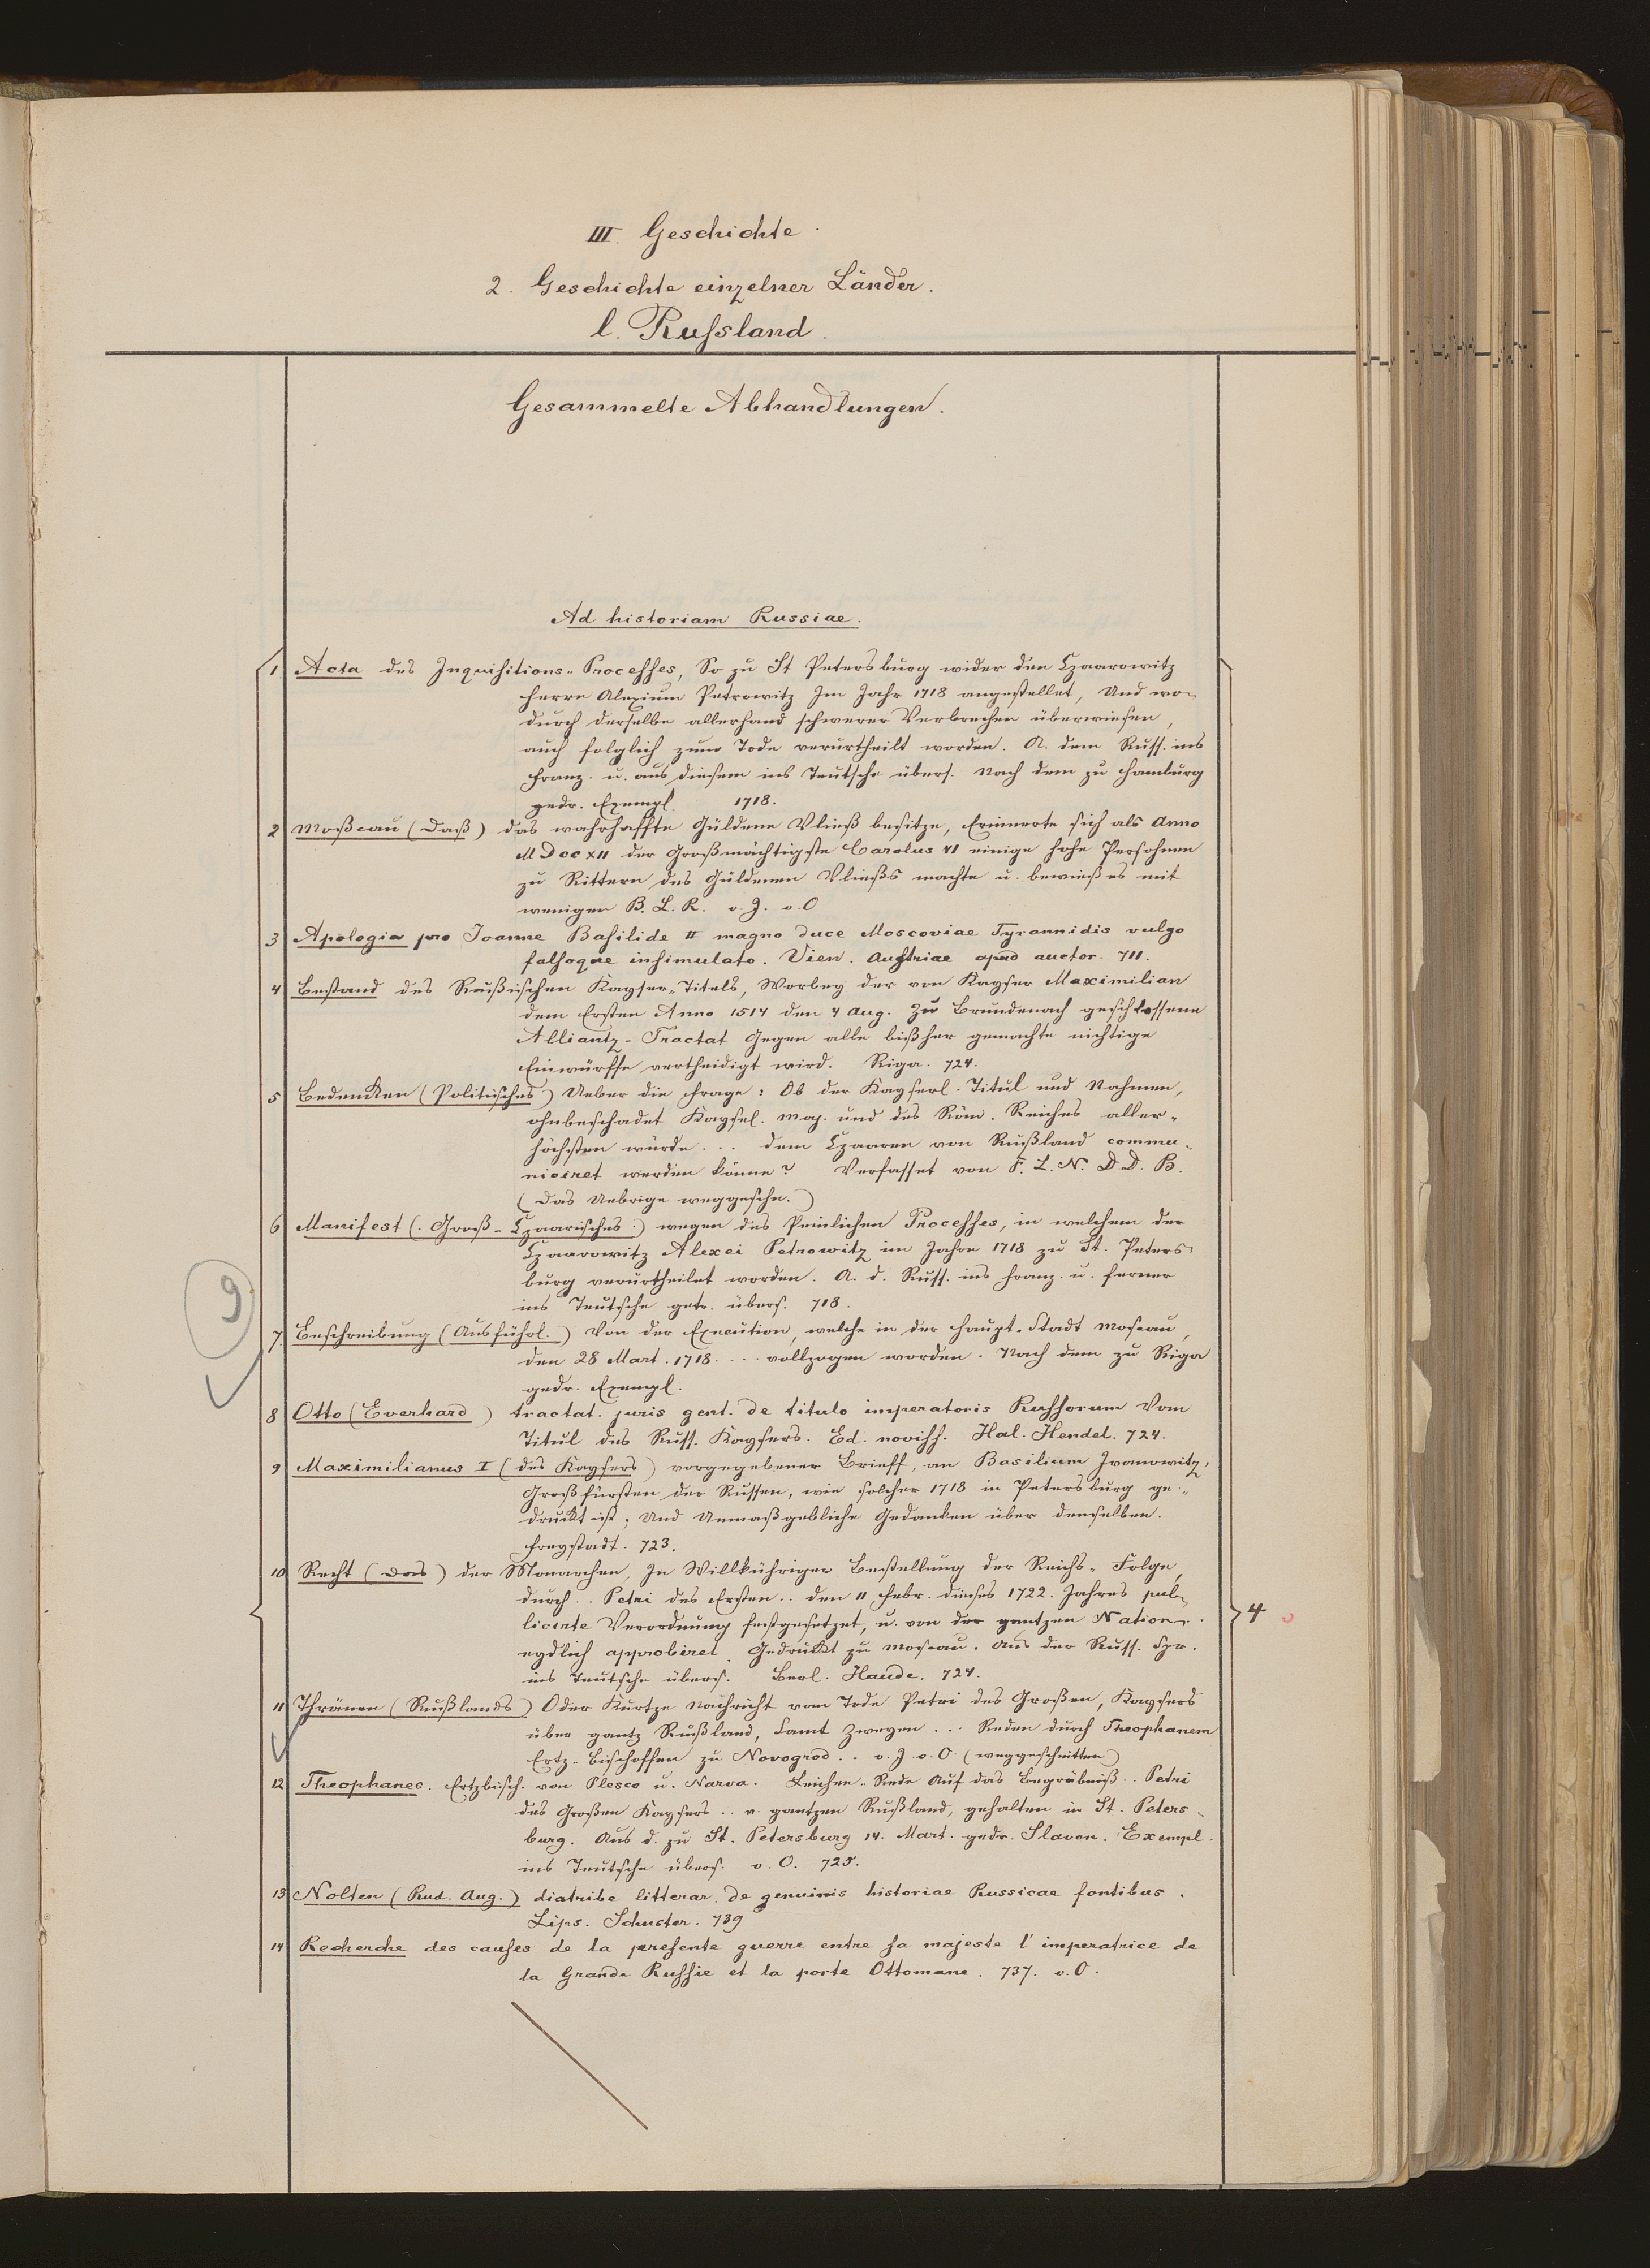 III. Geschichte.
2. Geschichte einzelner Länder.
l. Russland.
Gesammelte Abhandlungen.
Ad historiam Russiae.
1 Acta des Inquisitions-Processes, So zu St Petersburg wider den Czaarowitz
Herrn Alexium Petrowitz Im Jahr 1718 angestellet, Und wo-
durch derselbe allerhand schwerer Verbrechen überwiesen,
auch folglich zum Tode verurtheilt worden. A. dem Russ. ins
Franz. u. aus diesem ins Teutsche übers. Nach dem zu Hamburg
gedr. Exempl. 1718.
2 Moßcau (Daß) das wahrhaffte Güldene Vließ besitze, Erinnerte sich als Anno
MDccXII der Großmächtigste Carolus VI einige hohe Persohnen
zu Rittern des Güldenen Vließs machte u. bewieß es mit
wenigen B. L. R. o. J. o. O
3 Apologia pro Joanne Basilide II magno duce Moscoviae Tyrannidis vulgo
falsoque insimulato. Vien. Austriae apud auctor. 711.
4 Bestand des Rußischen Kayser-Titels, Worbey der von Kayser Maximilian
dem Ersten Anno 1514 den 4 Aug. Zu Brundenach geschlossene
Alliantz-Tractat Gegen alle bißher gemachte nichtige
Einwürffe vertheidigt wird. Riga. 724.
5 Bedenken (Politisches) Ueber die Frage: Ob der Kayserl. Titul und Nahmen,
ohnbeschadet Kaysel. Maj. und des Röm. Reiches aller-
höchsten würde ... dem Czaaren von Rußland commu-
niciret werden könne? Verfasset von F. L. N. D. D. B.
(Das Uebrige weggeschn.)
6 Manifest (. Groß-Czaarisches.) wegen des Peinlichen Processes, in welchem der
Czaarowitz Alexei Petrowitz im Jahre 1718 zu St. Peters-
burg verurtheilet worden. A. d. Russ. ins Franz. u. ferner
ins Teutsche getr. übers. 718.
9
7. Beschreibung (Ausführl.) Von der Execution, welche in der Haupt-Stadt Moscau,
den 28 Mart. 1718 .... vollzogen worden. Nach dem zu Riga
gedr. Exempl.
8 Otto (Everhard) tractat. juris gent. de titulo imperatoris Russorum Vom
Titul des Russ. Kaysers. Ed. noviss. Hal. Hendel. 724.
9 Maximilianus I (des Kaysers) vorgegebener Brieff, an Basilium Ivanowitz,
Großfürsten der Russen, wie solcher 1718 in Petersburg ge-
druckt ist; Und Unmaßgebliche Gedanken über denselben.
Freystadt. 723.
10 Recht (Das) der Monarchen, In Willkühriger Bestellung der Reichs-Folge,
durch .. Petri des Ersten .. den 11 Febr. dieses 1722. Jahres pub-
licirte Verordnung festgesetzet, u. von der gantzen Nation
eydlich approbiret. Gedruckt zu Moscau. Aus der Russ. Spr.
ins Teutsche übers. Berl. Haude. 724.
4
11 Thränen (Rußlands) Oder Kurtze Nachricht vom Tode Petri des Großen, Kaysers
über gantz Rußland, Samt Zweyen ... Reden durch Theophanem
Ertz-Bischoffen zu Novogrod .. o. J. o. O. (weggeschnitten)
12 Theophanes. Ertzbisch. von Plesco u. Narva. Leichen-Rede Auf das Begräbniß .. Petri
des Großen Kaysers .. v. gantzen Rußland, gehalten in St. Peters-
burg. Aus d. zu St. Petersburg 14. Mart. gedr. Slavon. Exempl.
ins Teutsche übers. o. O. 725.
13 Nolten (Rud. Aug.) diatribe litterar. de genuinis historiae Russicae fontibus.
Lips. Schuster. 739
14 Recherche des causes de la presente guerre entre sa majeste l'imperatrice de
la Grande Russie et la porte Ottomane. 737. o. O.